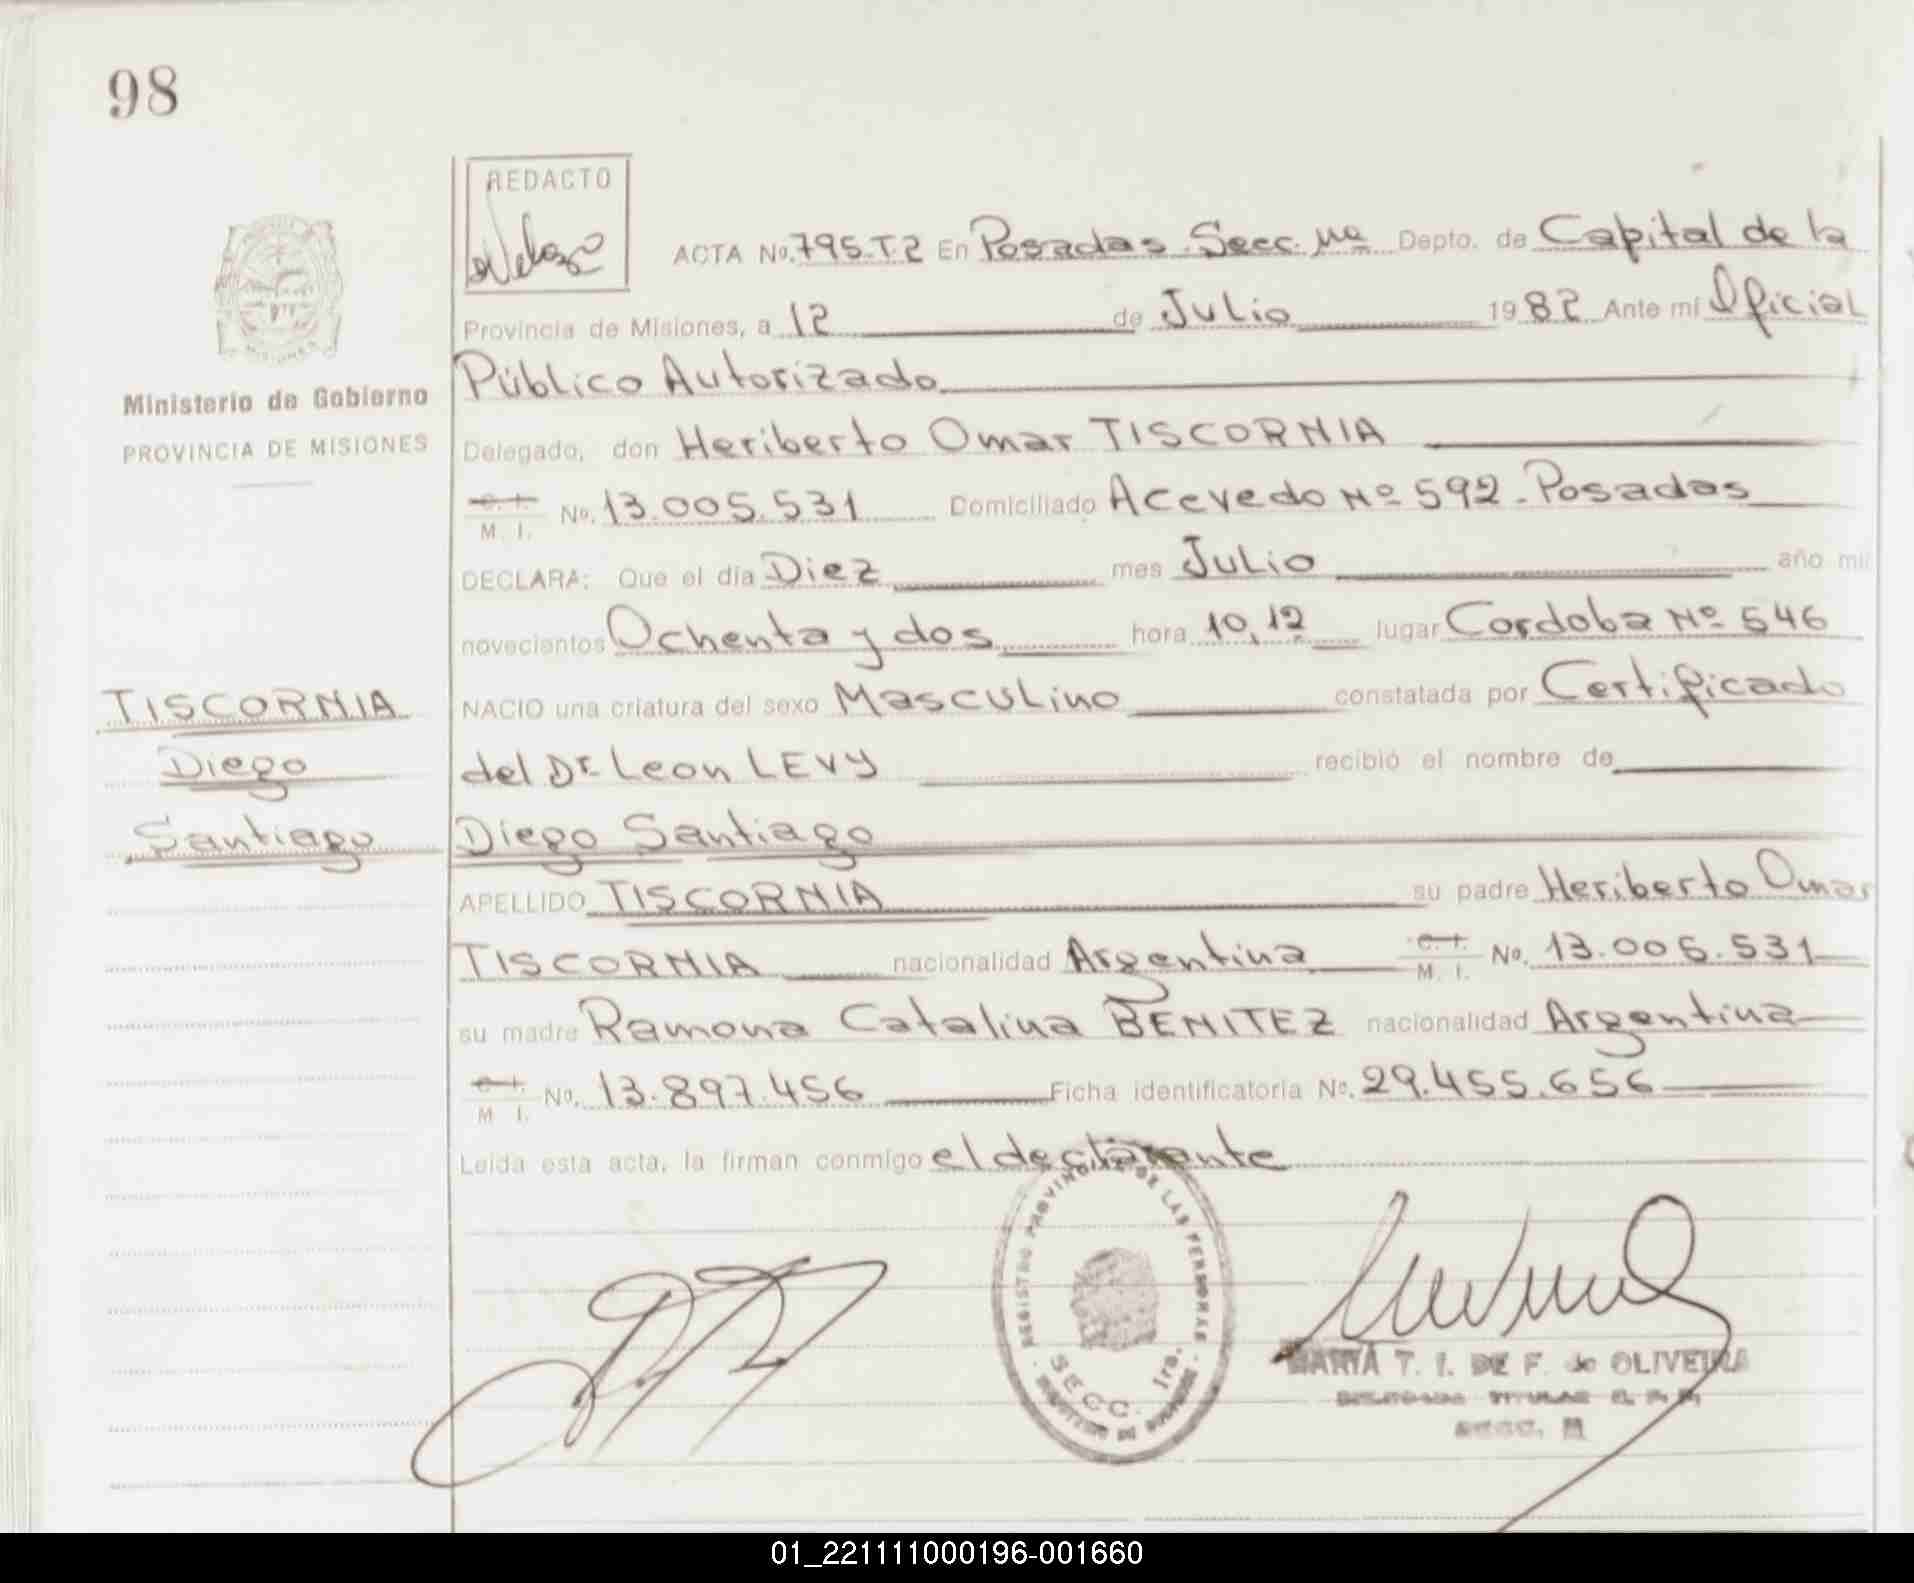 98
REDACTO
ACTA No. 795-T2 En Posadas Secc. 1ra Depto. de Capital de la
Provincia de Misiones, a 12 de Julio 1982 Ante mí Oficial
Público Autorizado
Delegado, don Heriberto Omar TISCORNIA
C. I.
M. I. No. 13.005.531 Domiciliado Acevedo Nº 592 - Posadas
DECLARA: Que el día Diez mes Julio año mil
novecientos Ochenta y dos hora 10,12 lugar Cordoba Nº 546
NACIO una criatura del sexo Masculino constatada por Certificado
del Dr. Leon LEVY recibió el nombre de
Diego Santiago
APELLIDO TISCORNIA su padre Heriberto Omar
TISCORNIA nacionalidad Argentina C. I.
M. I. No. 13.005.531
su madre Ramona Catalina BENITEZ nacionalidad Argentina
C. I.
M. I. No. 13.897.456 Ficha identificatoria No. 29.455.656
Leída esta acta, la firman conmigo el declarante
MISIONES
Ministerio de Gobierno
PROVINCIA DE MISIONES
TISCORNIA
Diego
Santiago
REGISTRO PROVINCIAL DE LAS PERSONAS
SECC. 1ra.
MARIA T. I. DE F. de OLIVEIRA
01_221111000196-001660